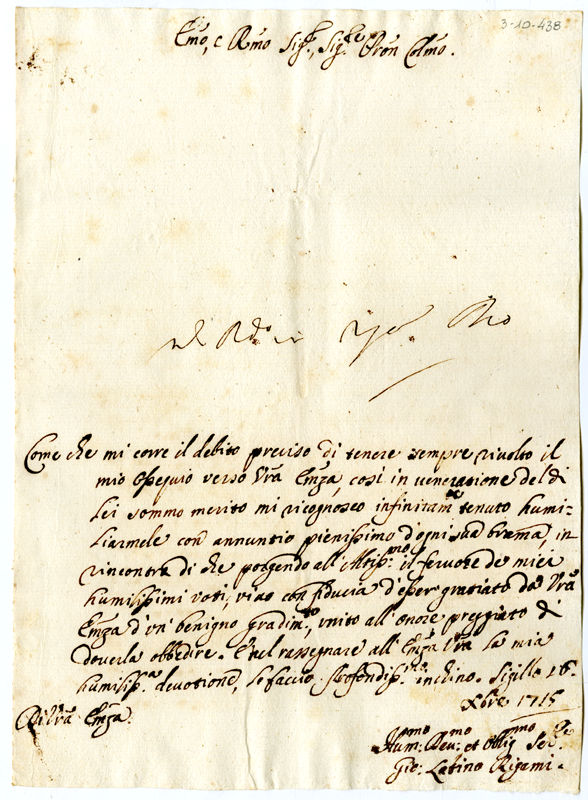 3-10-438
Emo, e Rmo Sigre, Sigre Pron Colmo.
Come che mi corre il debito preciso di tenere sempre rivolto il
mio ossequio verso Vra Emza, così in veneratione del di
Lei sommo merito mi ricognosco infinitamte tenuto humi-
liarmele con annuntio pienissimo d'ogni sua brama, in
rincontra di che porgendo all' il fervore de miei
humilissimi voti, vivo con fiducia d'esser gratiato da Vra
Emza d'un benigno gradimto, unito all'onore preggiato di
doverla obbedire. E nel rassegnare all'Emza Vra la mia
humilissa devotione, le faccio profondissmo inchino. Sigillo 18
Xbre 1715
Di Vra Emza.
Hummo Devmo et Obligmo Serre
Gio: Latino Rigami.